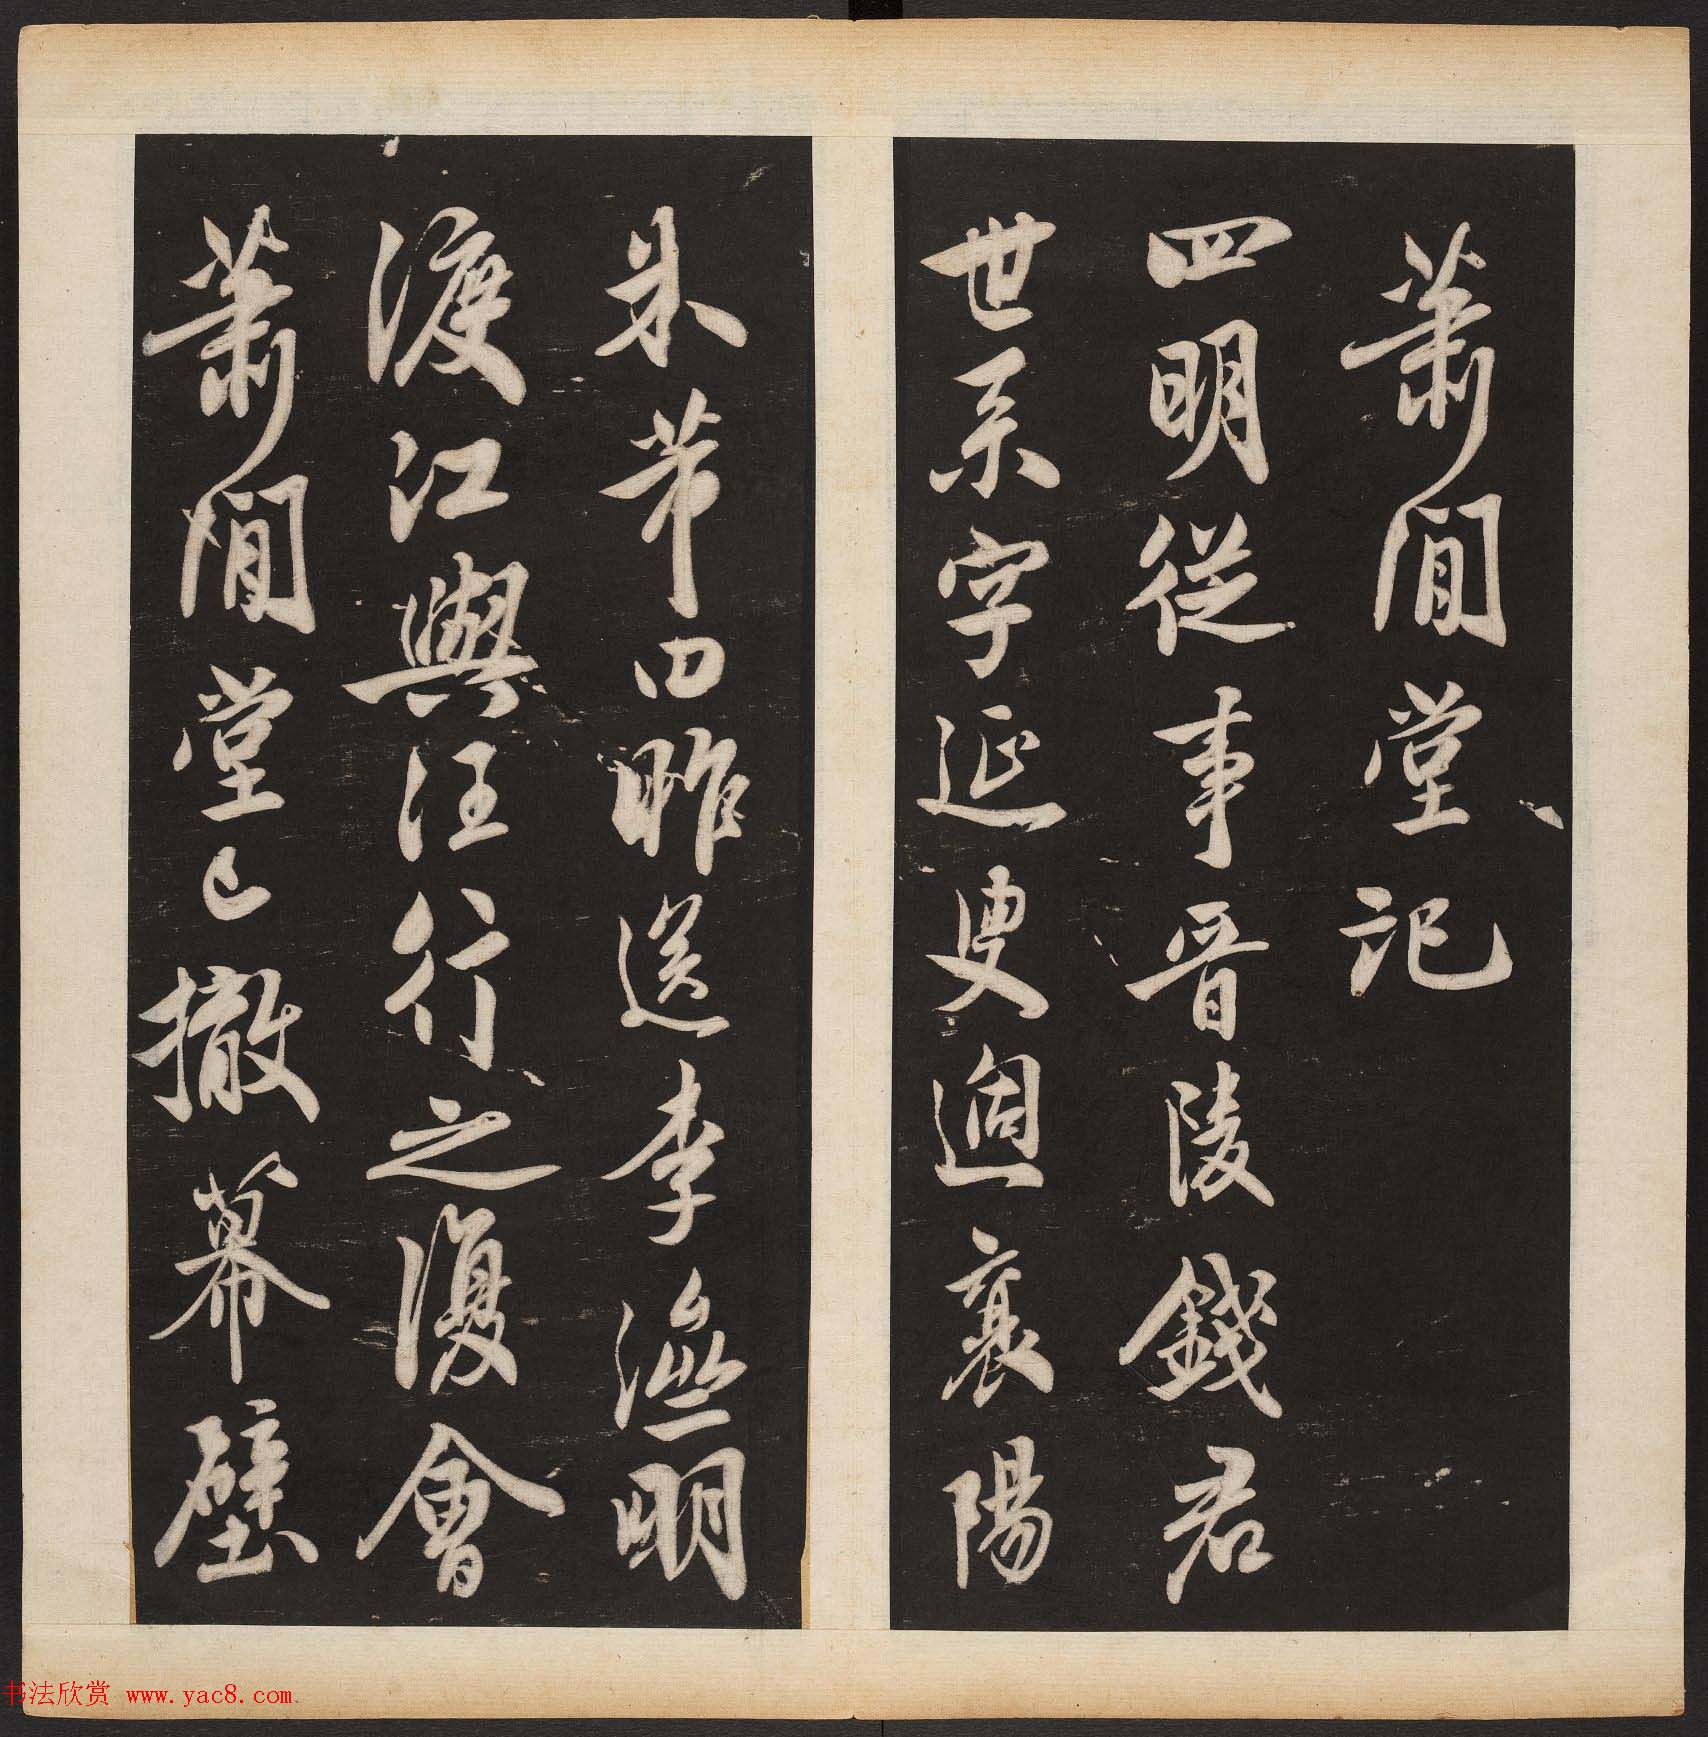 蕭閒堂記
四明從事晉陵錢君
世系字延叟過襄陽
米芾曰昨送李澁明
渡江與汪行之復會
蕭閒堂已撤幕壁
书法欣赏 www.yac8.com